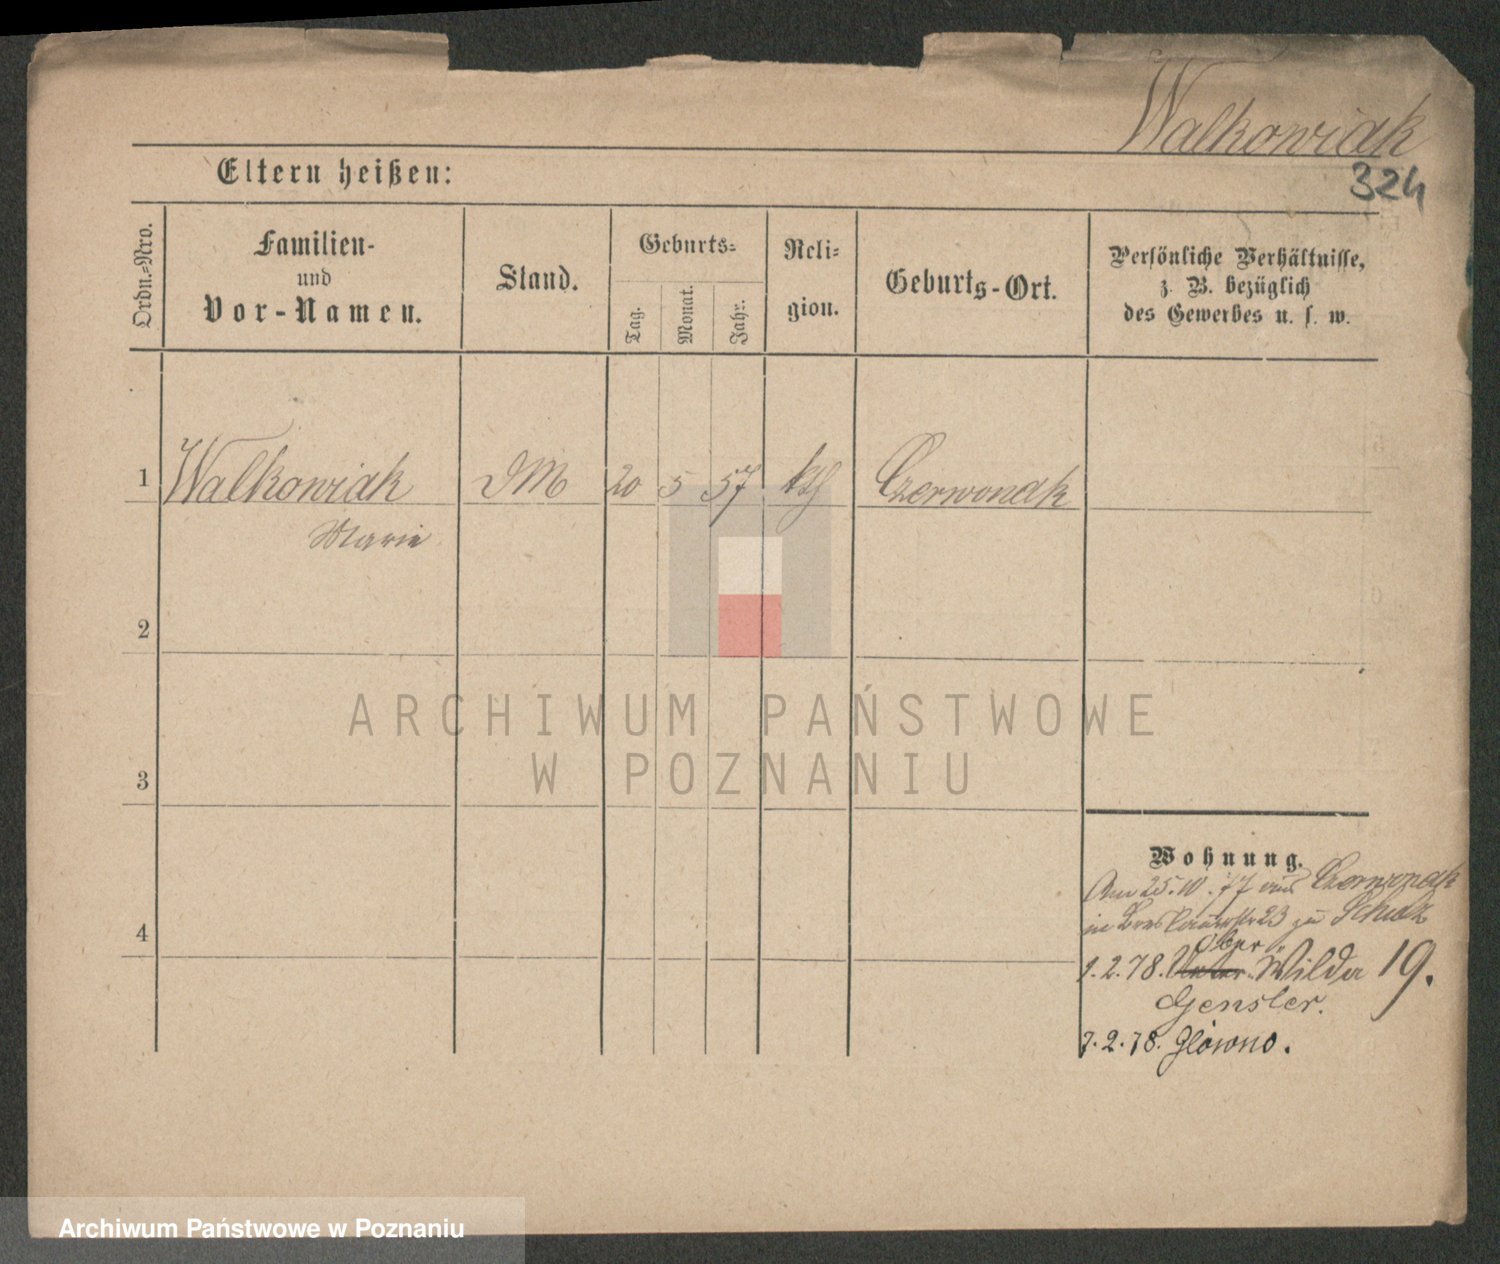 Walkowiak
324
Eltern heißen:
Ordn.=Nro.
Familien-
und
Vor-Namen.
Stand.
Geburts=
Tag.
Monat.
Jahr.
Reli=
gion.
Geburts-Ort.
Persönliche Verhältnisse,
z. B. bezüglich
des Gewerbes u. s. w.
1 Walkowiak DM 20 5 57 kth Czerwonak
Marie
2
3
4
Wohnung.
Am 25.10.77 aus Czerwonak
in 23 zu
Ober
1.2.78. Unter Wilda 19.
Gensler.
7.2.78. Glòwno.
ARCHIWUM PAŃSTWOWE
W POZNANIU
Archiwum Państwowe w Poznaniu